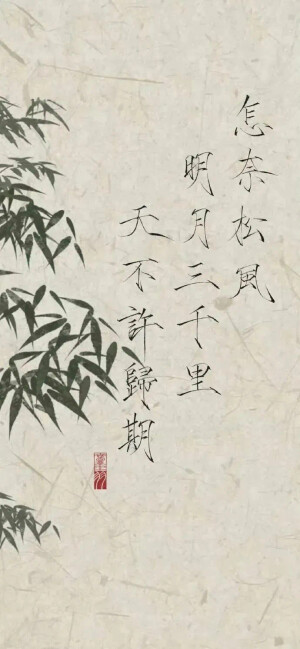 怎奈松風
明月三千里
天不許歸期